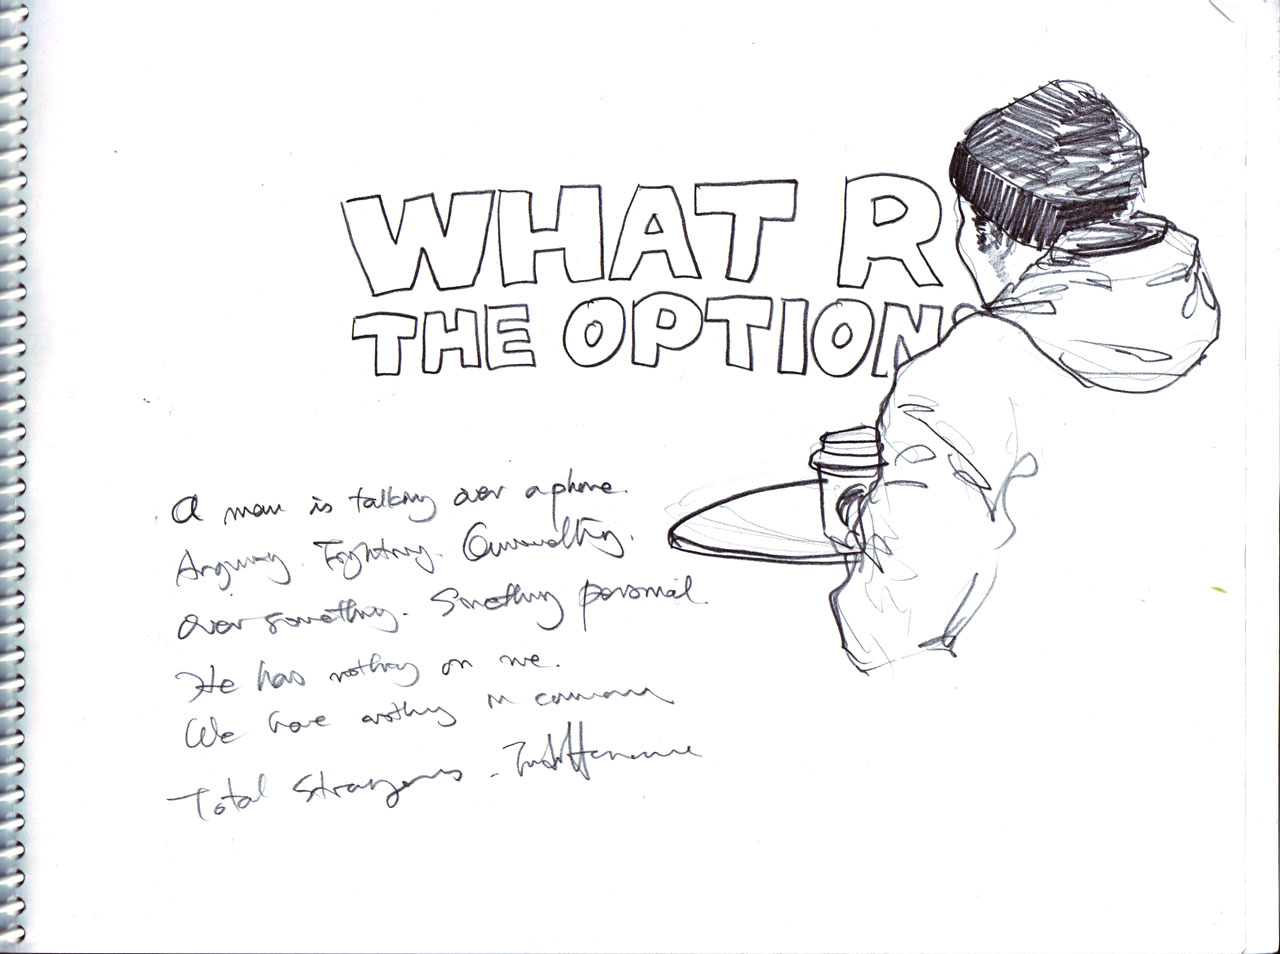 WHAT R
THE OPTION
A man is talking over a phone.
Arguing. Fighting.
over something. Something personal.
He has nothing on me.
We have nothing in common
Total Strangers - Indifference